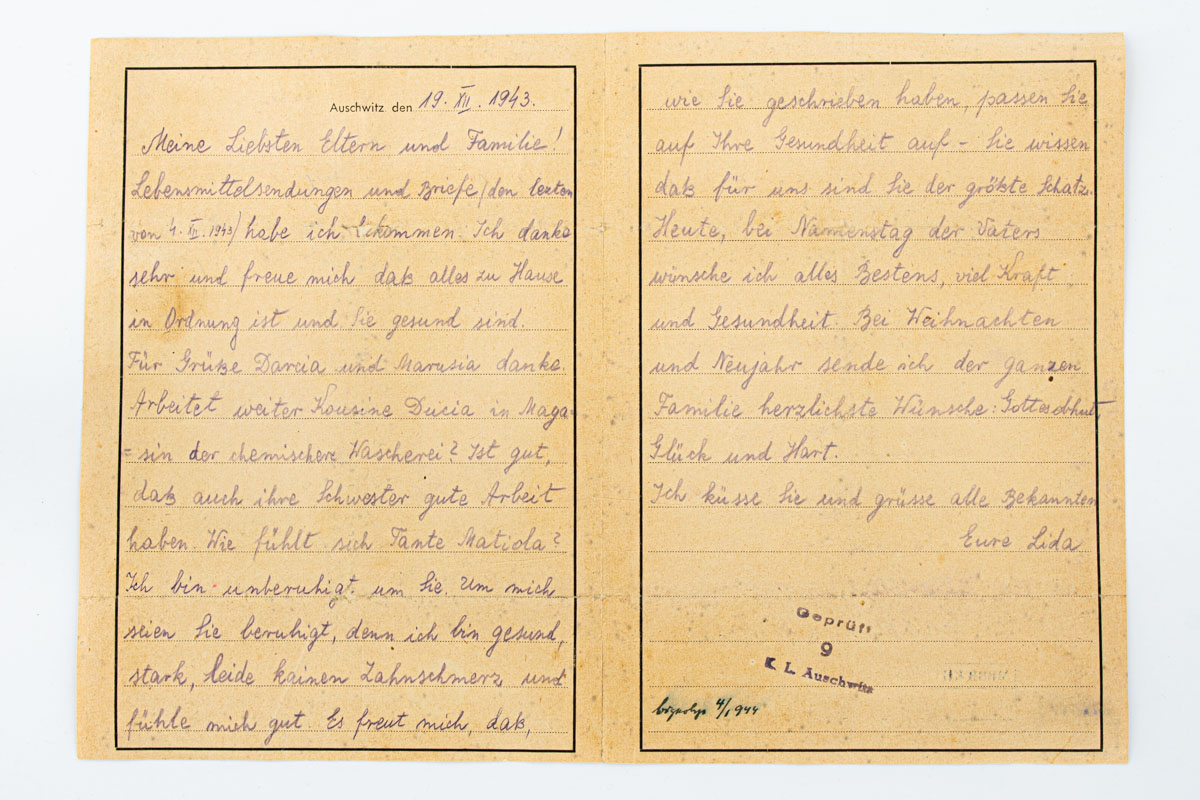 Auschwitz den 19. XII. 1943.
Meine Liebsten Eltern und Familie!
Lebensmittelsendungen und Briefe /den lezten
von 4. XII. 1943/ habe ich bekommen. Ich danke
sehr und freue mich daß alles zu Hause
in Ordnung ist und Sie gesund sind.
Für Grüße Darcia und Marusia danke.
Arbeitet weiter Kousine Ducia in Maga=
=sin der chemischere Wascherei? Ist gut,
daß auch ihre Schwester gute Arbeit
haben. Wie fühlt sich Tante Matiola?
Ich bin unberuhigt um Sie. Um mich
seien Sie beruhigt, denn ich bin gesund,
stark, leide kainen Zahnschmerz und
fühle mich gut. Es freut mich, daß,
wie Sie geschrieben haben, passen Sie
auf Ihre Gesundheit auf – Sie wissen
daß für uns sind Sie der größte Schatz.
Heute, bei Namenstag der Vaters
wünsche ich alles Bestens, viel Kraft
und Gesundheit. Bei Weihnachten
und Neujahr sende ich der ganzen
Familie herzlichste Wünsche: Gottesobhut,
Glück und Hart.
Ich küsse Sie und grüsse alle Bekannten
Eure Lida
Geprüft
9
K. L. Auschwitz
4/I 944